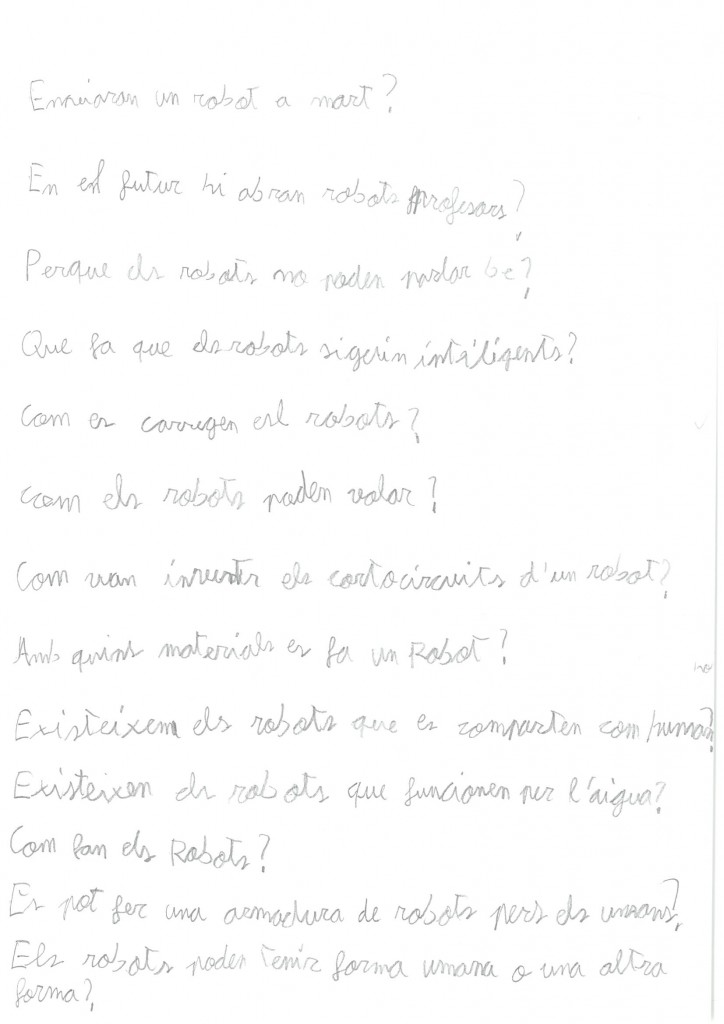 Enviaran un robot a mart?
En el futur hi abran robots profesors?
Perque els robots no poden parlar be?
Que fa que els robots sigerin intéligents?
Com es carregen els robots?
Com els robots poden volar?
Com van inventr els cortocircuits d'un robot?
Amb quins materials es fa un Robot?
Existeixem els robots que es comparten com humans?
Existeixen els robots que funcionen per l'aigua?
Com fan els Robots?
Es pot fer una armadura de robots pers els umans?
Els robots poden tenir forma umana o una altra
forma?